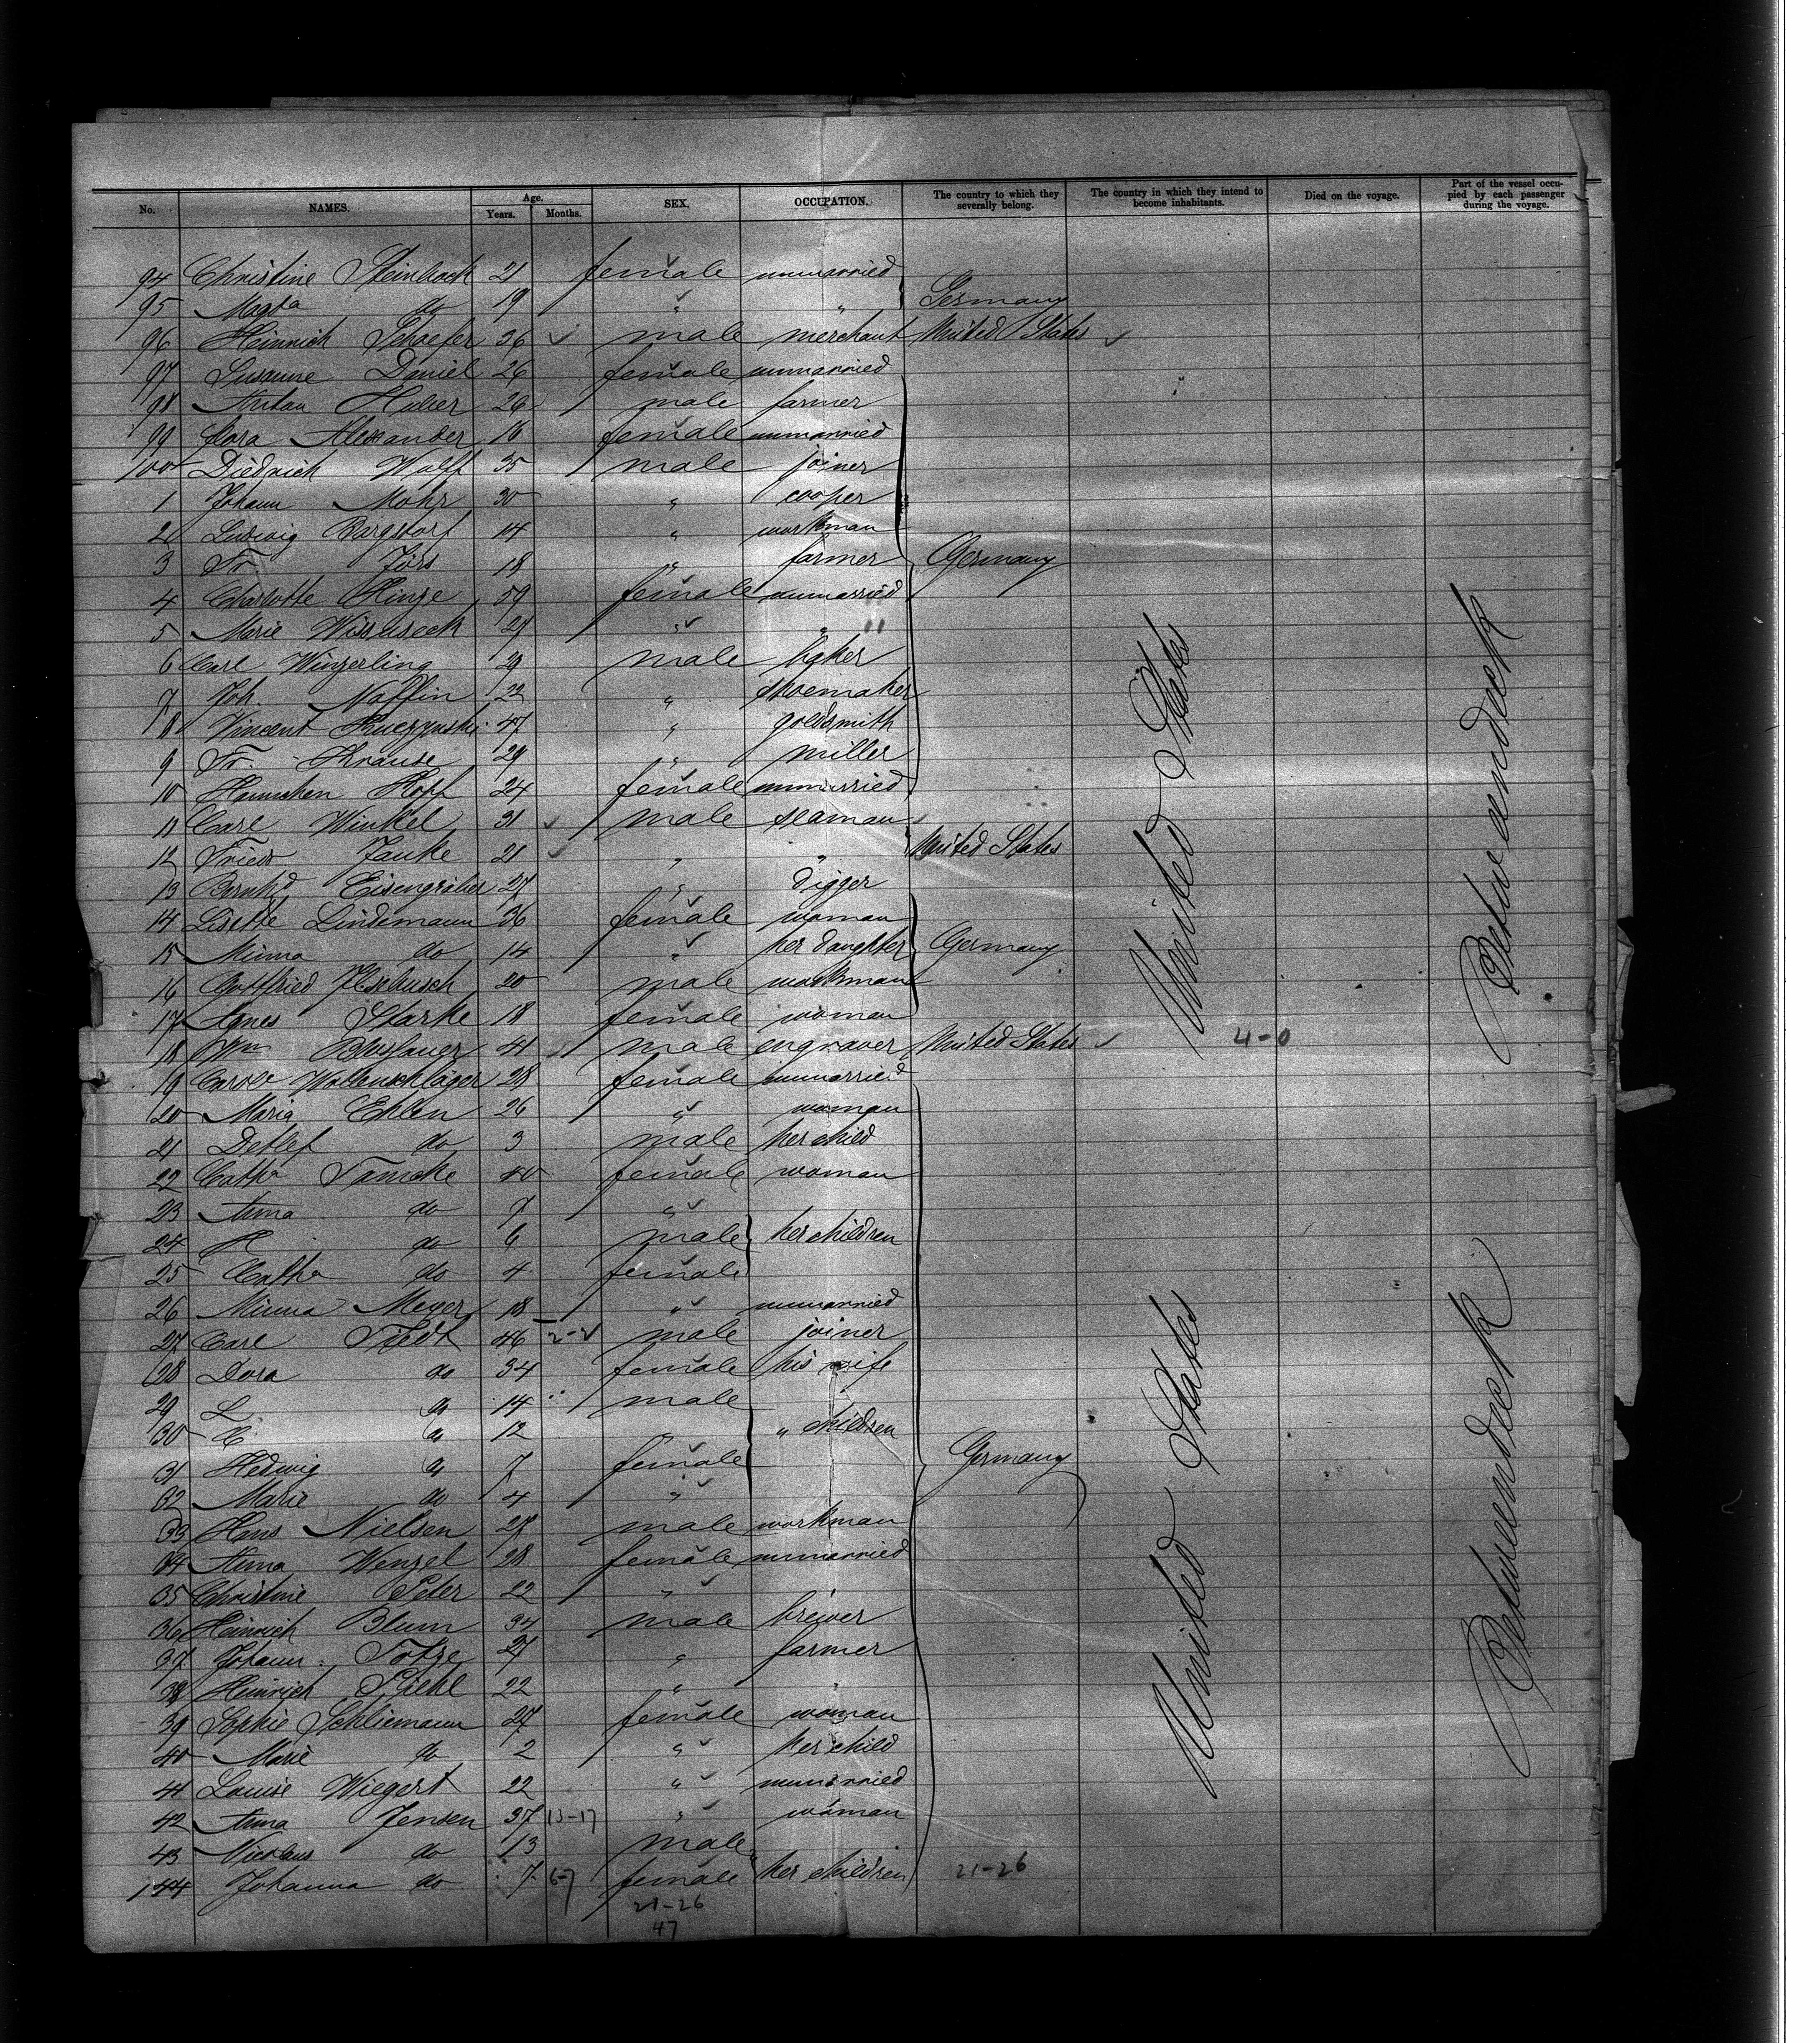 No. NAMES. Age. Years. Months. SEX. OCCUPATION. The country to which they severally belong. The country in which they intend to become inhabitants. Died on the voyage. Part of the vessel occupied by each passenger during the voyage.
94 Christine Steinbock 21 female unmarried
95 Magda do 19 " " Germany
96 Heinrich Schaefer 36 male merchant United States
97 Susanne Daniel 26 female unmarried
98 Anton Huber 26 male farmer
99 Flora Alexander 16 female unmarried
100 Diedrich Wolff 35 male joiner
1 Johann Mohr 30 " cooper
2 Ludwig Bargstorf 14 " workman
3 Fr Jörs 18 " farmer Germany
4 Charlotte Hinze 59 female unmarried
5 Marie 27 " "
6 Carl Winzerling 29 male baker
7 Joh. Naffin 22 " shoemaker
8 Vincent 47 " goldsmith
9 Fr. Krause 29 " miller
10 Hannchen Kopf 24 female unmarried
11 Carl Winkel 31 male seaman
12 Friedr Janke 21 " " United States
13 Bernhd Eisengräber 27 " digger
14 Lisette Lindemann 36 female woman
15 Minna do 14 " her daughter Germany
16 Gottfried 20 male workman
17 Agnes Starke 18 female woman
18 Wm Breslauer 41 male engraver United States 4-0
19 Carol Wollenschläger 28 female unmarried
20 Maria Ehlen 26 " woman
21 Detlef do 3 male her child
22 Catha Tamcke 40 female woman
23 Anna do 7 "
24 H do 6 male her children
25 Catha do 4 female
26 Minna Meyer 18 " unmarried
27 Carl Tiedt 46 2-2 male joiner
28 Dora do 34 female his wife
29 L do 14 male
30 C do 12 " children
31 Hedwig do 7 female Germany
32 Marie do 4 "
33 Hans Nielsen 27 male workman
34 Anna Wenzel 28 female unmarried
35 Christine Peter 22 "
36 Heinrich Blum 34 male brewer
37 Johann Totze 27 " farmer
38 Heinrich 22 " "
39 Sophie Schliemann 27 female woman
40 Marie do 2 " her child
41 Louise Wiegert 22 " unmarried
42 Anna Jensen 37 13-17 " woman
43 Nicolaus do 13 male
144 Johanna do 7 6-7 female her children 21-26
21-26
47
United States
Betweendeck
United States
Betweendeck